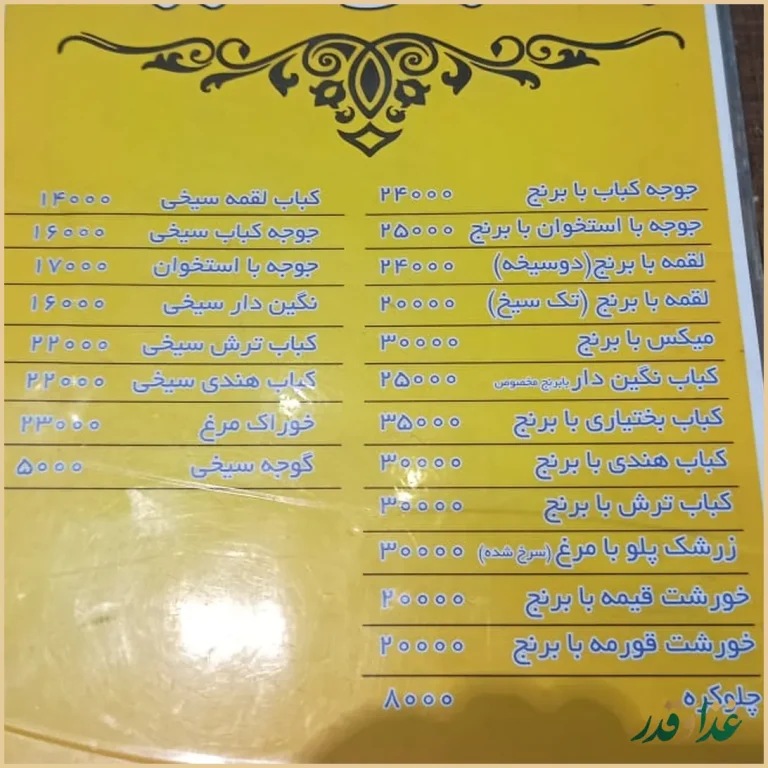 جوجه کباب با برنج ۲۴۰۰۰
جوجه با استخوان با برنج ۲۵۰۰۰
لقمه با برنج(دوسیخه) ۲۴۰۰۰
لقمه با برنج (تک سیخ) ۲۰۰۰۰
میکس با برنج ۳۰۰۰۰
کباب نگین دار بابرنج مخصوص ۲۵۰۰۰
کباب بختیاری با برنج ۳۵۰۰۰
کباب هندی با برنج ۳۰۰۰۰
کباب ترش با برنج ۳۰۰۰۰
زرشک پلو با مرغ (سرخ شده) ۳۰۰۰۰
خورشت قیمه با برنج ۲۰۰۰۰
خورشت قورمه با برنج ۲۰۰۰۰
چلوکره ۸۰۰۰
کباب لقمه سیخی ۱۴۰۰۰
جوجه کباب سیخی ۱۶۰۰۰
جوجه با استخوان ۱۷۰۰۰
نگین دار سیخی ۱۶۰۰۰
کباب ترش سیخی ۲۲۰۰۰
کباب هندی سیخی ۲۲۰۰۰
خوراک مرغ ۲۳۰۰۰
گوجه سیخی ۵۰۰۰